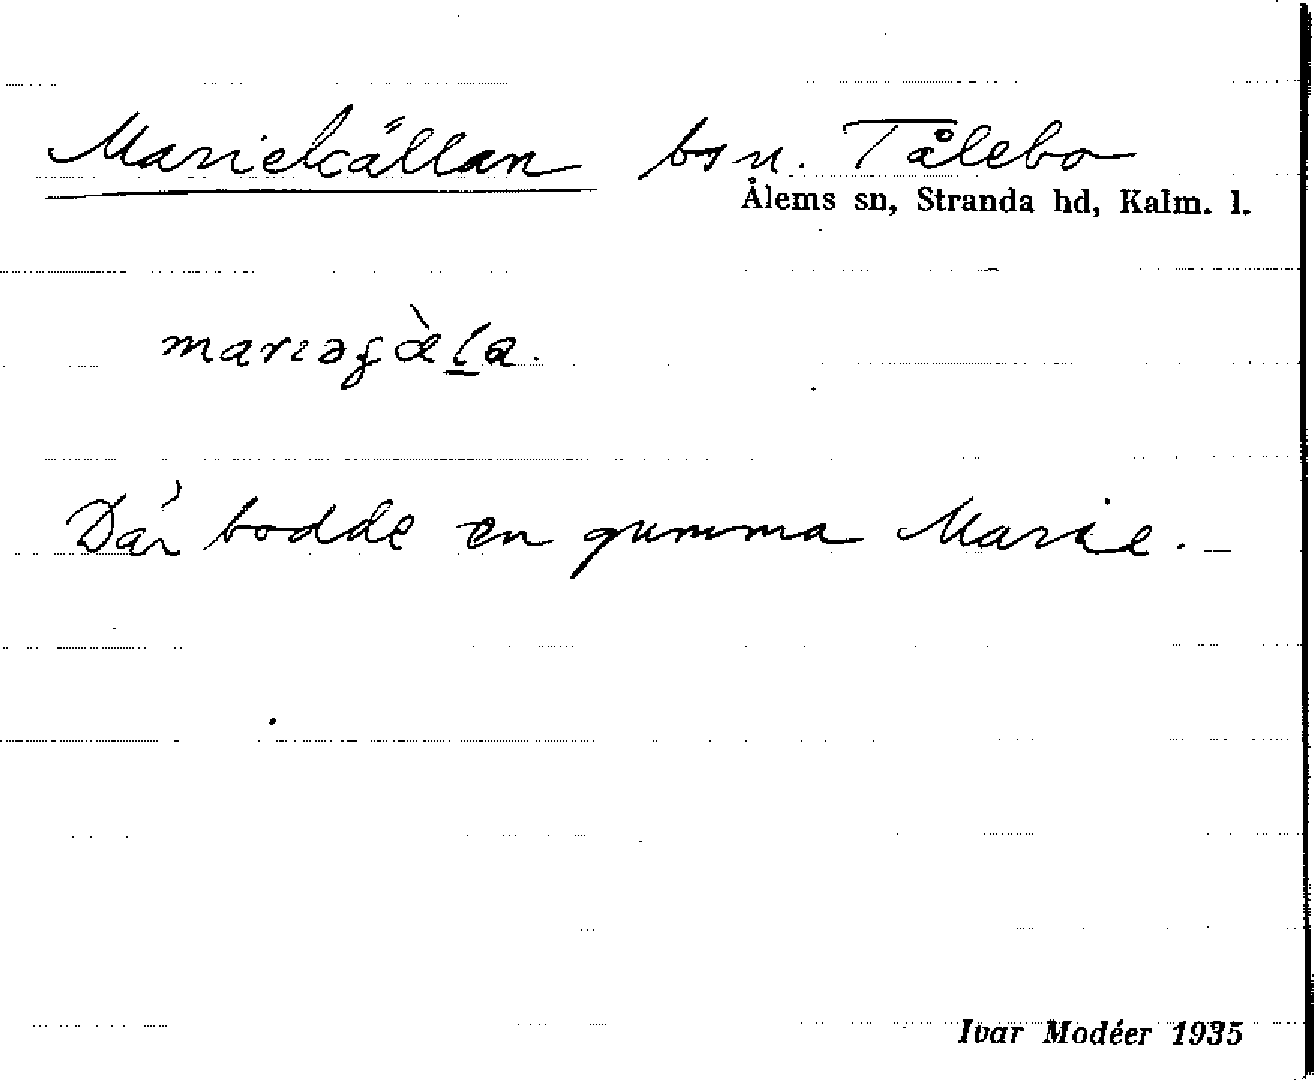 Mariekällan bsn. Tålebo
Ålems sn, Stranda hd, Kalm. l.
Där bodde en gumma Marie. —
Ivar Modéer 1935